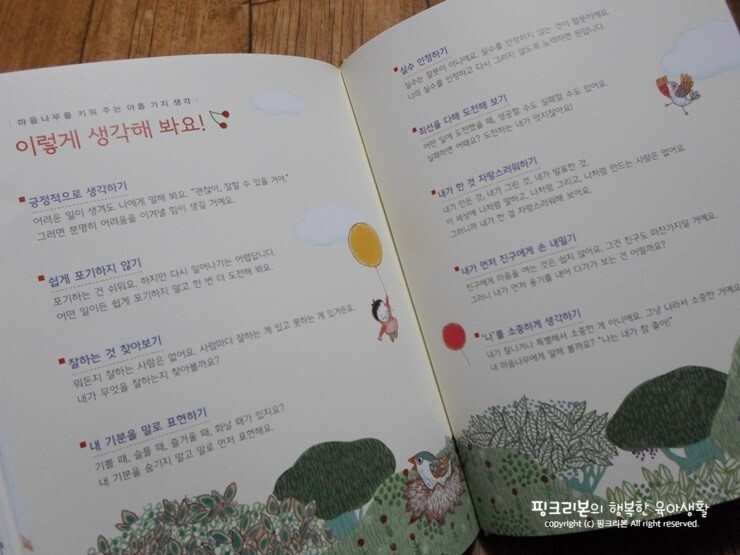 마음나무를 키워 주는 아홉 가지 생각
이렇게 생각해 봐요!
긍정적으로 생각하기
어려운 일이 생겨도 나에게 말해 봐요. “괜찮아, 잘할 수 있을 거야”
그러면 분명히 어려움을 이겨낼 힘이 생길 거예요.
쉽게 포기하지 않기
포기하는 건 쉬워요. 하지만 다시 일어나기는 어렵답니다.
어떤 일이든 쉽게 포기하지 말고 한 번 더 도전해 봐요.
잘하는 것 찾아보기
뭐든지 잘하는 사람은 없어요. 사람마다 잘하는 게 있고 못하는 게 있거든요.
내가 무엇을 잘하는지 찾아볼까요?
내 기분을 말로 표현하기
기쁠 때, 슬플 때, 즐거울 때, 화날 때가 있지요?
내 기분을 숨기지 말고 말로 먼저 표현해요.
실수 인정하기
실수는 잘못이 아니에요. 실수를 인정하지 않는 것이 잘못이에요.
나의 실수를 인정하고 다시 그러지 않도록 노력하면 된답니다.
최선을 다해 도전해 보기
어떤 일에 도전했을 때, 성공할 수도 실패할 수도 있어요.
실패하면 어때요? 도전하는 내가 멋지잖아요!
내가 한 것 자랑스러워하기
내가 만든 것, 내가 그린 것, 내가 발표한 것.
이 세상에 나처럼 말하고, 나처럼 그리고, 나처럼 만드는 사람은 없어요.
그러니까 내가 한 걸 자랑스러워해 보아요.
내가 먼저 친구에게 손 내밀기
친구에게 마음을 여는 것은 쉽지 않아요. 그건 친구도 마찬가지일 거예요.
그러니 내가 먼저 용기를 내어 다가가 보는 건 어떨까요?
‘나’를 소중하게 생각하기
내가 잘나거나 특별해서 소중한 게 아니에요. 그냥 나라서 소중한 거예요
내 마음나무에게 말해 볼까요? “나는 내가 참 좋아!”
핑크리본의 행복한 육아생활
copyright (c) 핑크리본 All right reserved.